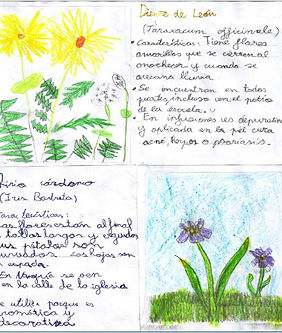 Diente de León
(Taraxacum officinale)
• Características: Tiene flores
amarillas que se cierran al
anochecer y cuando se
avecina lluvia
• Se encuentran en todas
partes, incluso en el patio
de la escuela.
En infusiones es depurativa
y aplicada en la piel cura
acné, hojos o psoriasis.
lirio cárdono
(Iris Barbata)
Características:
Las flores están al final
tallos largos y erguidos
sus pétalos son
curvados Las hojas son
espada.
En se ven
en la calle de la iglesia
Se utiliza porque es
aromática y
decorativa